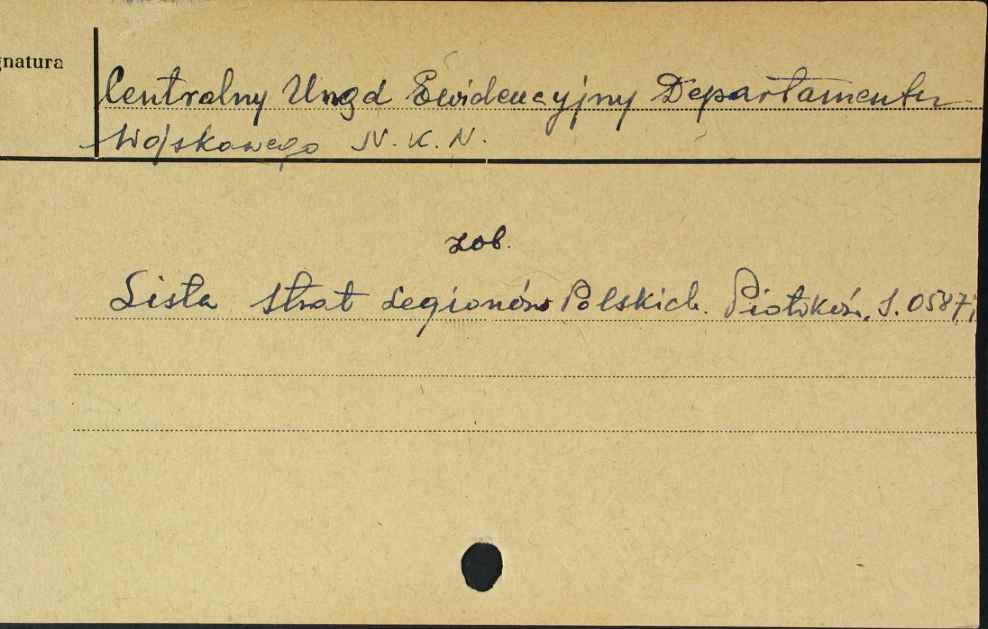 gnatura
Centralny Urząd Ewidencyjny Departamentu
Wojskowego N. K. N.
zob.
Lista strat Legionów Polskich. Piotrków, S. 0587;